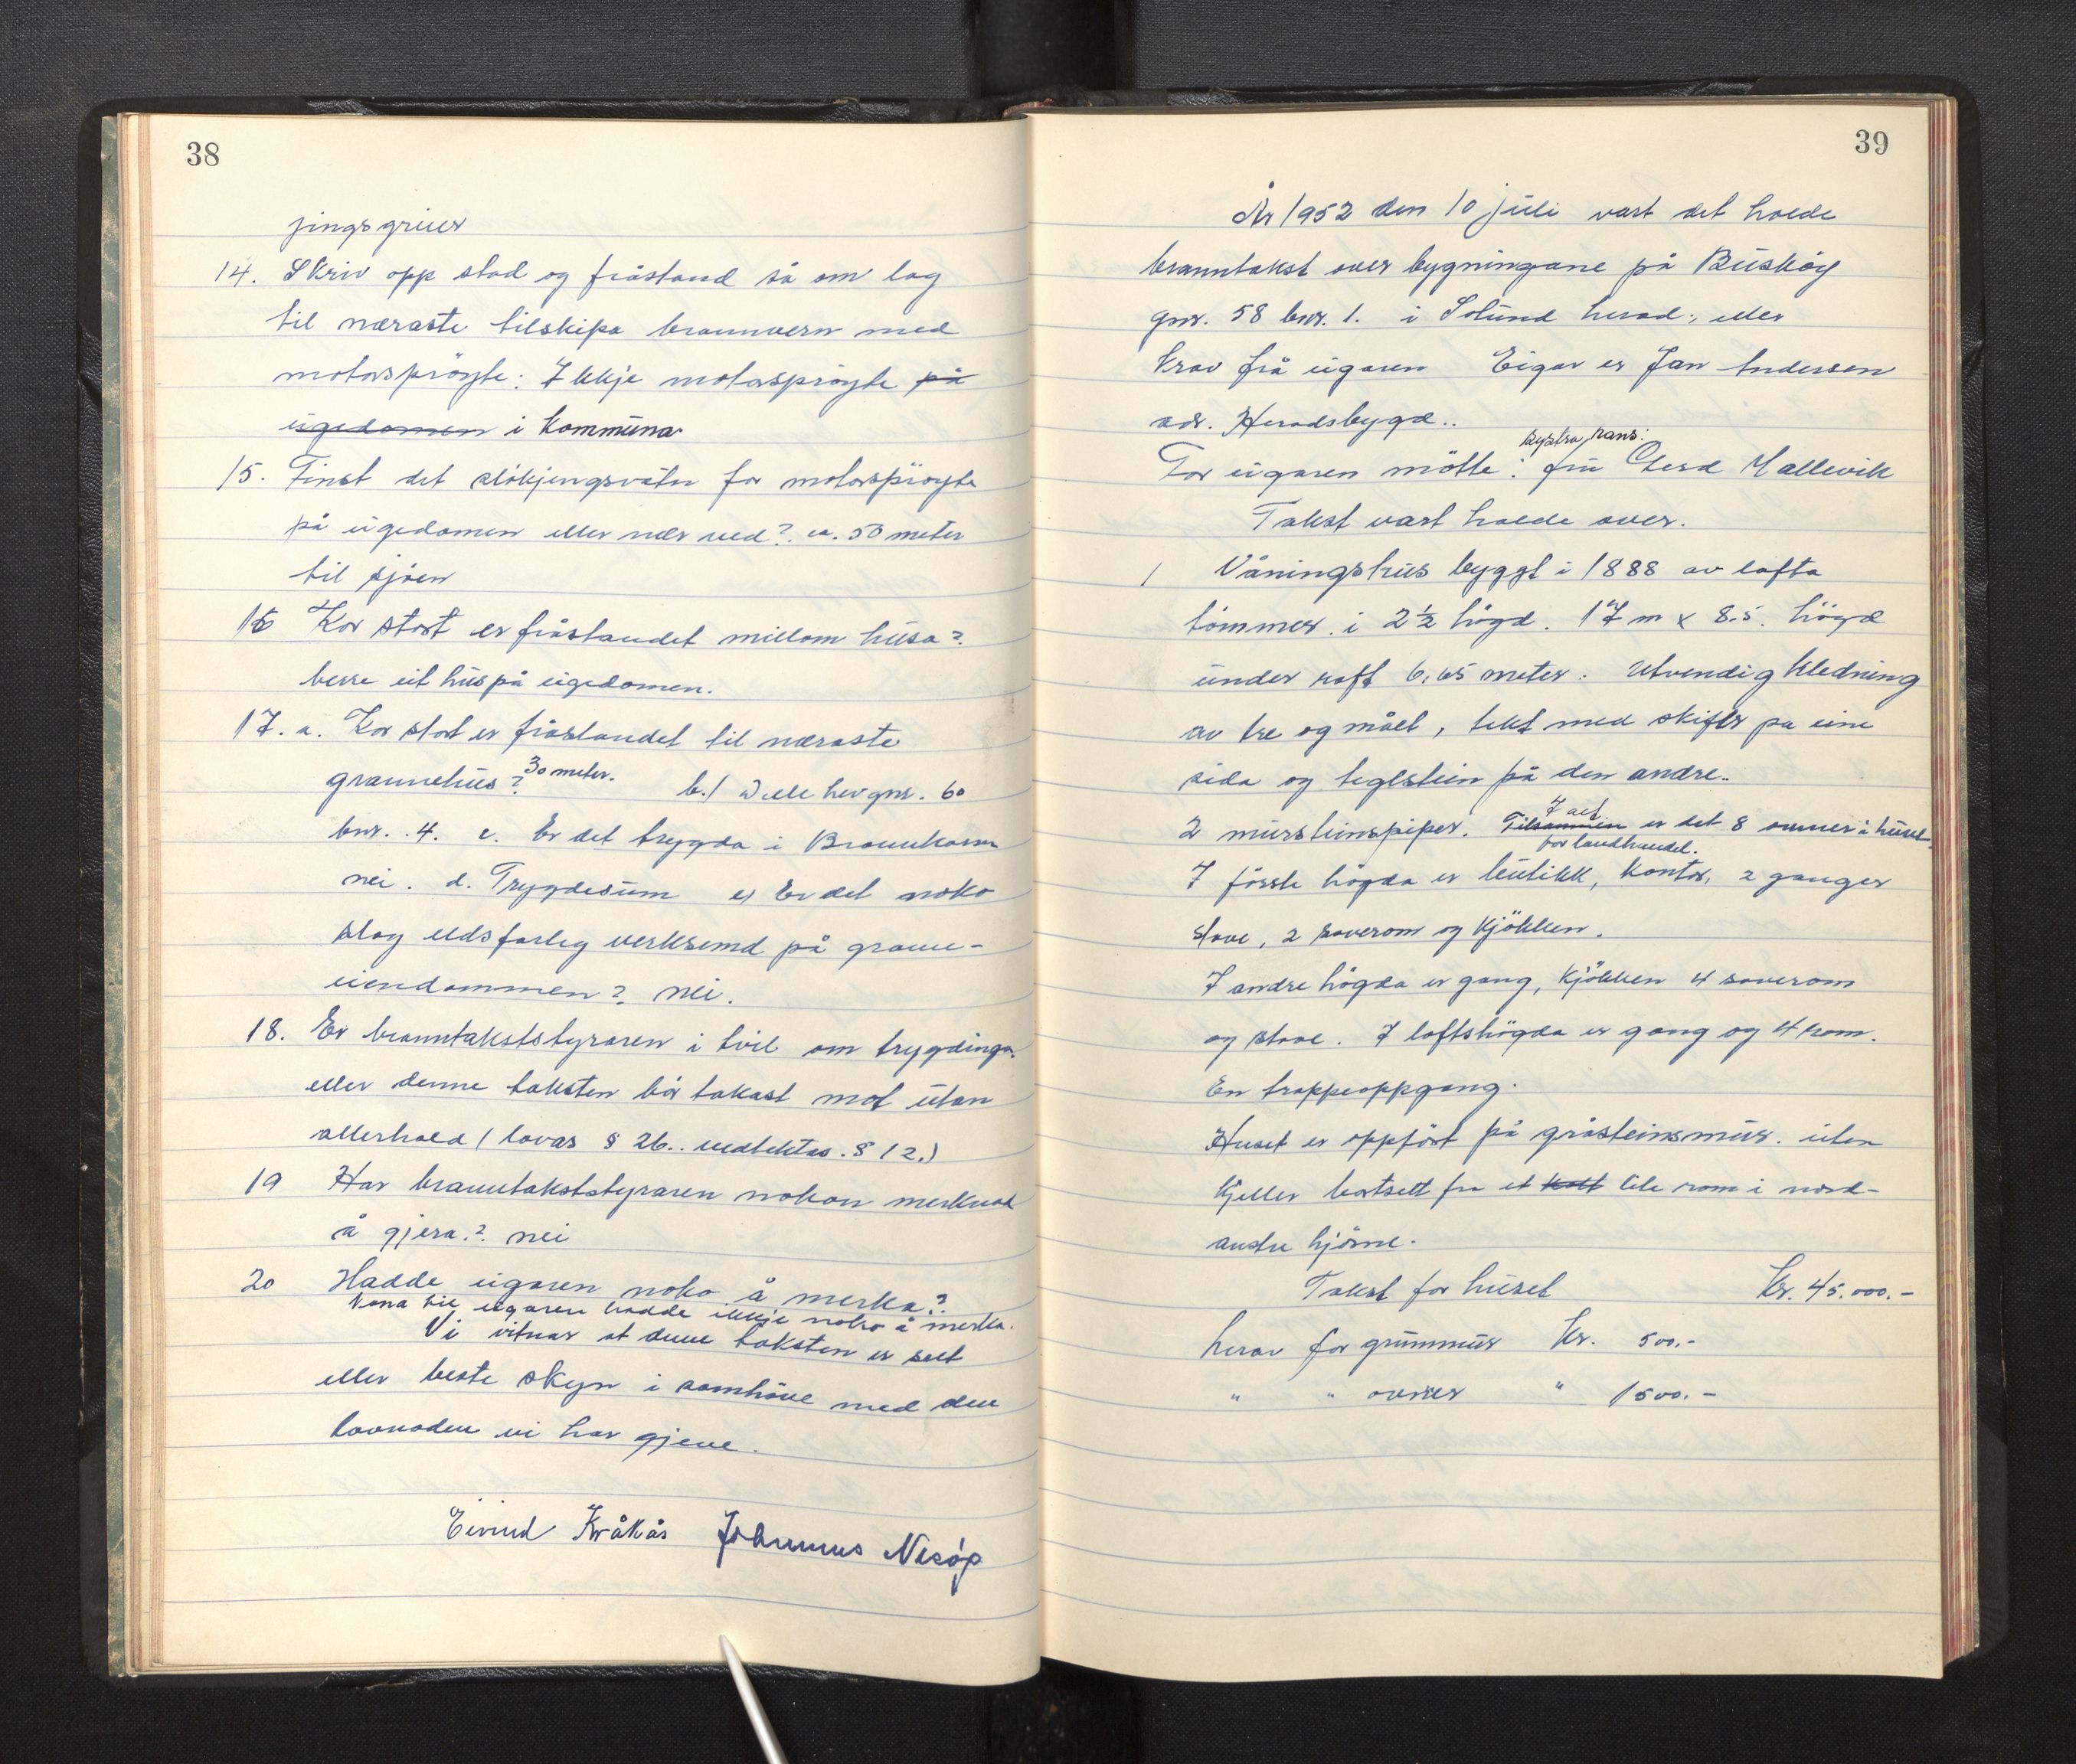 38
jingsgreier
14. Skriv opp stad og fråstand så om lag
til næraste tilskipa brannvern med
motorsprøyte: Ikkje motorsprøyte på
eigedomen i kommuna
15. Finst det sløkjingsvatn for motorspröyte
på eigedomen eller nær ved? ca. 50 meter
til sjøen
16 Kor stort er fråstandet millom husa?
berre eit hus på eigedomen.
17. a. Kor stort er fråstandet til næraste
grannehus? 30 meter. b.) Dette hev gnr. 60
bnr. 4. c. Er det trygda i Brannkassen
nei. d. Trygdesum e) Er det noko
slag eldsfarleg verksemd på granne-
eiendommen? nei.
18. Er branntakststyraren i tvil om trygdinga
eller denne taksten bör takast mot utan
atterhald (lovas § 26.. vedtektas. § 12.)
19 Har branntakststyraren nokon merknad
å gjera.? nei
20 Hadde eigaren noko å merka?
Kona til eigaren hadde ikkje noko å merka.
Vi vitnar at denne taksten er sett
etter beste skyn i samhøve med den
lovnaden vi har gjeve.
Eivind Kråkås Johannes Nesøy
39
År 1952 den 10 juli vart det halde
branntakst over bygningane på Buskøy
gnr. 58 bnr. 1. i Solund herad, etter
krav frå eigaren Eigar er Jan Andersen
adr. Heradsbygd..
systra hans:
For eigaren mötte: fru Gerd Hallevik
Takst vart halde over.
1 Våningshus byggt i 1888 av lafta
tömmer i 2½ högd. 17 m x 8.5. högd
under raft 6,65 meter. Utvendig kledning
av tre og målt, tekt med skifer pa eine
sida og teglstein på den andre.
2 mursteinspiper. Tilsammen I alt er det 8 omner i huset.
for landhandel.
I första högda er butikk, kontor, 2 ganger
stove, 2 soverom og kjökken.
I andre högda er gang, kjökken 4 soverom
og stove. I loftshögda er gang og 4 rom.
En trappeoppgang.
Huset er oppfört på gråsteinsmur. uten
kjeller bortsett fra et lite rom i nord-
austre hjørne.
Takst for huset kr. 45.000.-
herav for grunnmur kr. 500.-
" " ovner " 1500.-